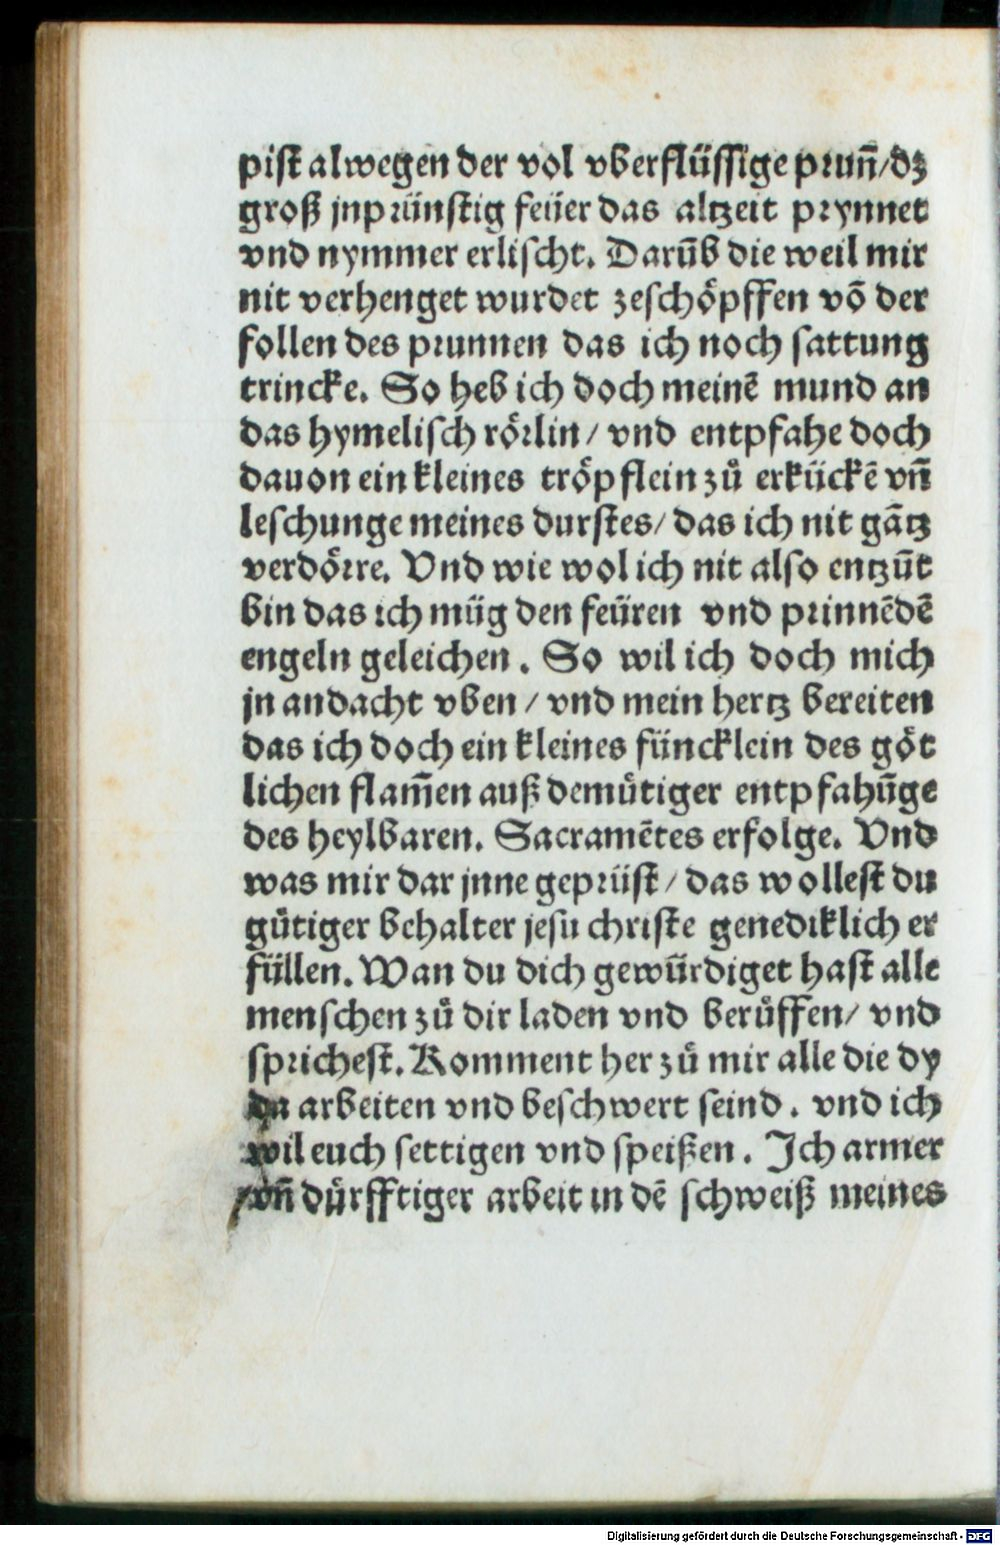 pist alwegen der vol vberflüssige prunn̄/dz
groß jnprünstig feüer das altzeit prynnet
vnd nymmer erlischt. Darūb die weil mir
nit verhenget wurdet zeschöpffen vō der
follen des prunnen das ich noch sattung
trincke. So heb ich doch meinē mund an
das hymelisch rörlin/ vnd entpfahe doch
dauon ein kleines tröpflein zů erkückē vn̄
leschunge meines durstes/ das ich nit gātz
verdörre. Vnd wie wol ich nit also entzūt
bin das ich müg den feüren vnd prinnēdē
engeln geleichen. So wil ich doch mich
jn andacht vben/ vnd mein hertz bereiten
das ich doch ein kleines füncklein des göt
lichen flam̄en auß demütiger entpfahūge
des heylbaren. Sacramētes erfolge. Vnd
was mir dar jnne geprüst/ das wollest du
gütiger behalter jesu christe genediklich er
füllen. Wan du dich gewürdiget hast alle
menschen zů dir laden vnd berůffen/ vnd
sprichest. Komment her zů mir alle die dy
da arbeiten vnd beschwert seind. vnd ich
wil euch settigen vnd speißen. Ich armer
vn̄ dürfftiger arbeit in dē schweiß meines
Digitalisierung gefördert durch die Deutsche Forschungsgemeinschaft - DFG